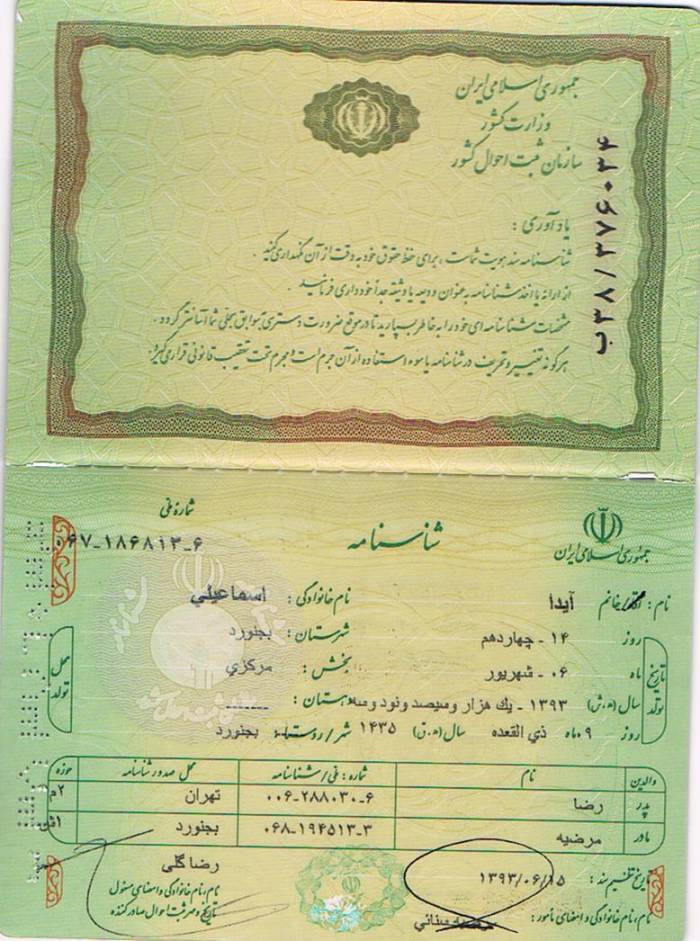 جمهوری اسلامی ایران
وزارت کشور
سازمان ثبت احوال کشور
ب۳۸/۳۷۶۰۳۴
یادآوری :
شناسنامه سند هویت شماست ، برای حفظ حقوق خود به دقت از آن نگهداری کنید .
از ارائه یا اخذ شناسنامه به عنوان ودیعه یا وثیقه جداً خودداری فرمائید .
مشخصات شناسنامه ای خود را به خاطر بسپارید تا در موقع ضرورت دسترسی به سوابق سجلی شما آسانتر گردد .
هرگونه تغییر و تحریف در شناسنامه یا سوء استفاده از آن جرم است و مجرم تحت تعقیب قانونی قرار می گیرد .
جمهوری اسلامی ایران
شناسنامه
شماره ملی
۰۶۷-۱۸۶۸۱۳-۶
نام : آقا/خانم آیدا نام خانوادگی : اسماعيلي
تاریخ تولد
روز ۱۴ - چهاردهم شهرستان : بجنورد
ماه ۰۶ - شهریور بخش : مرکزي
سال (ه.ش) ۱۳۹۳ - يك هزار وسيصد ونود وسه دهستان : ------
روز ۹ ماه ذي القعده سال (ه.ق) ۱۴۳۵ شهر/روستا : بجنورد
محل تولد
والدین نام شماره : ملی/شناسنامه محل صدور شناسنامه حوزه
پدر رضا ۰۰۶-۲۸۸۰۳۰-۶ تهران ۲م
مادر مرضیه ۰۶۸-۱۹۴۵۱۳-۳ بجنورد
تاریخ تنظیم سند : ۱۳۹۳/۰۶/۱۵
نام، نام خانوادگی و امضای مأمور :
رضا گلی
نام، نام خانوادگی و امضای مسئول
تاریخ و مهر ثبت احوال صادر کننده